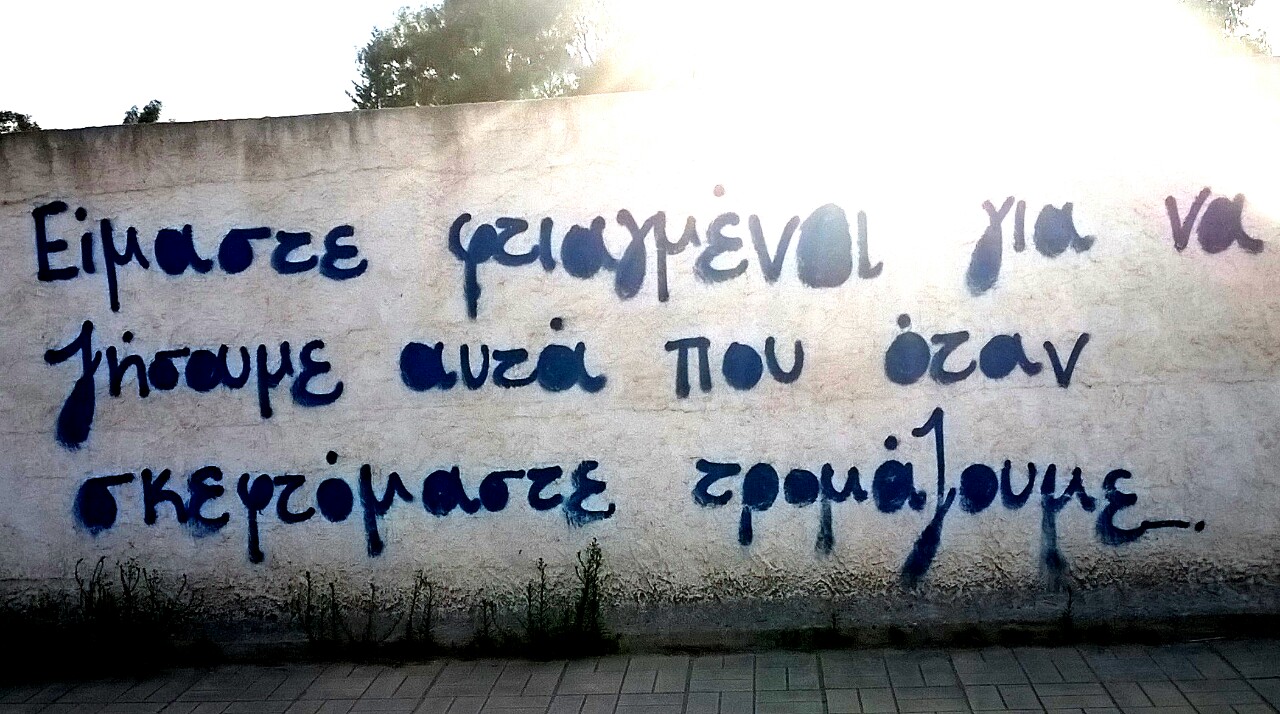 Είμαστε φτιαγμένοι για να
ζήσουμε αυτά που όταν
σκεφτόμαστε τρομάζουμε.